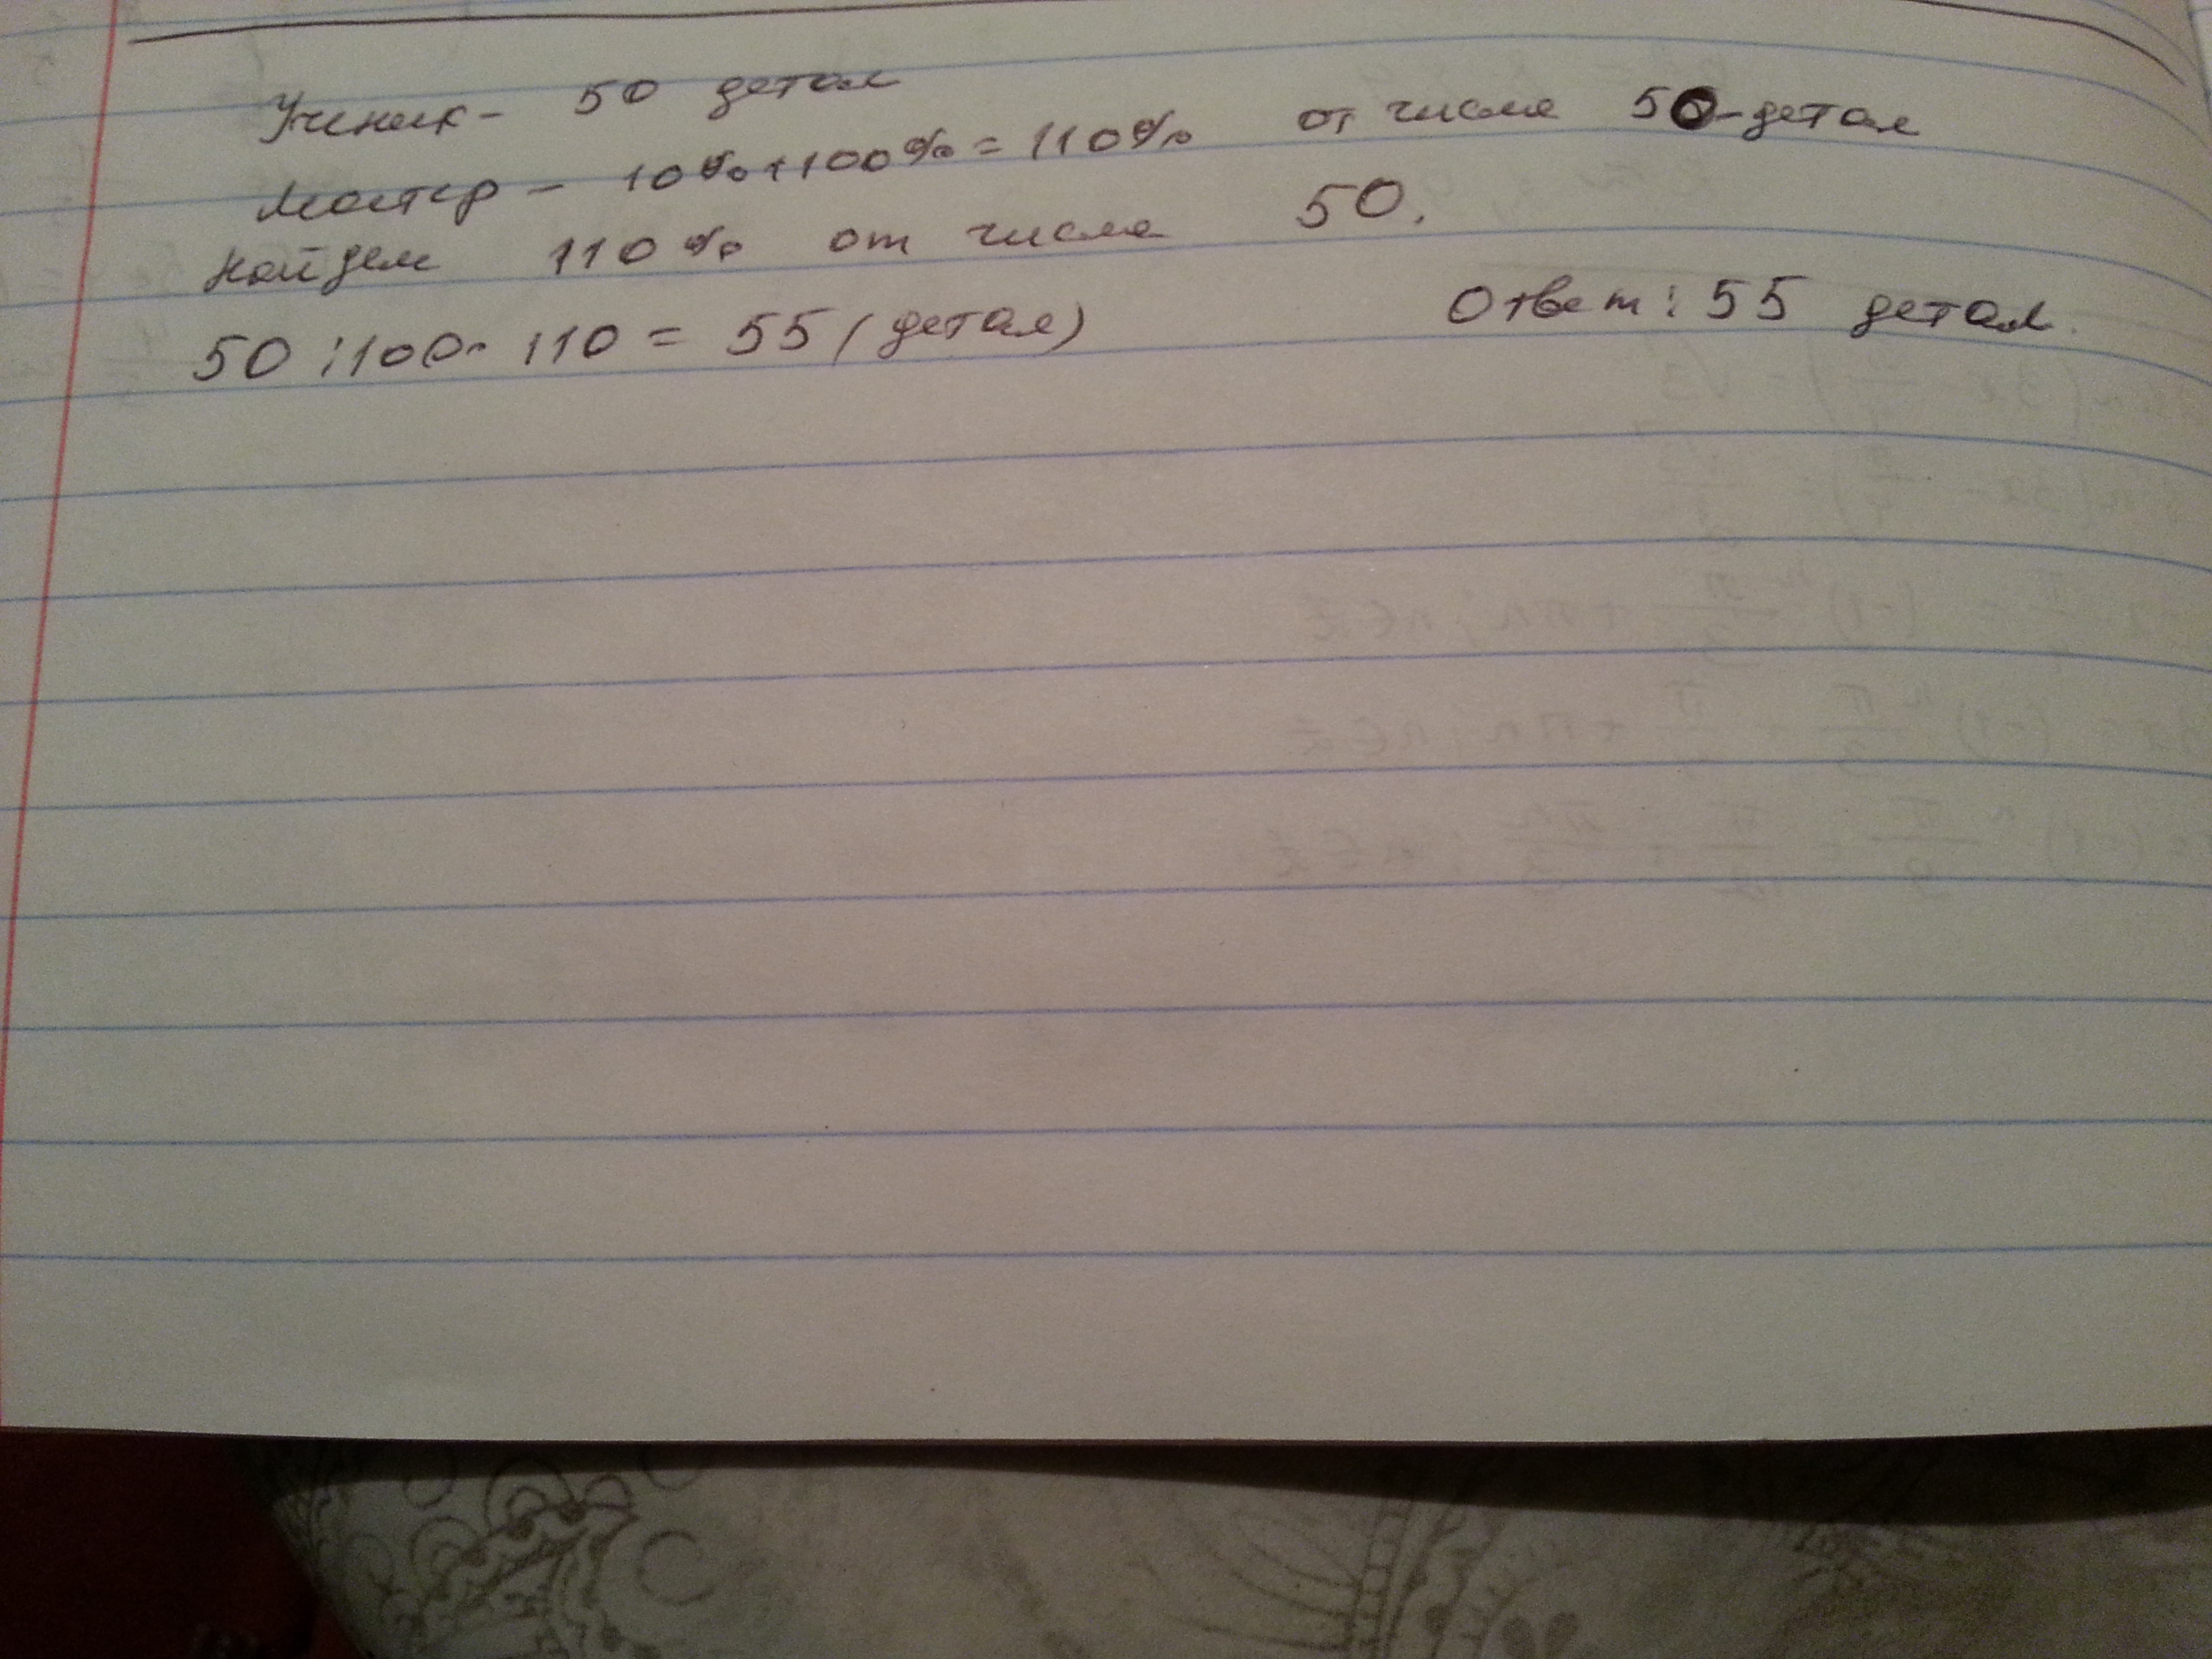 Ученик - 50 детал
Мастер - 10% + 100% = 110% от числа 50 - детал
Найдем 110% от числа 50.
50 : 100 · 110 = 55 (детал) Ответ: 55 детал.